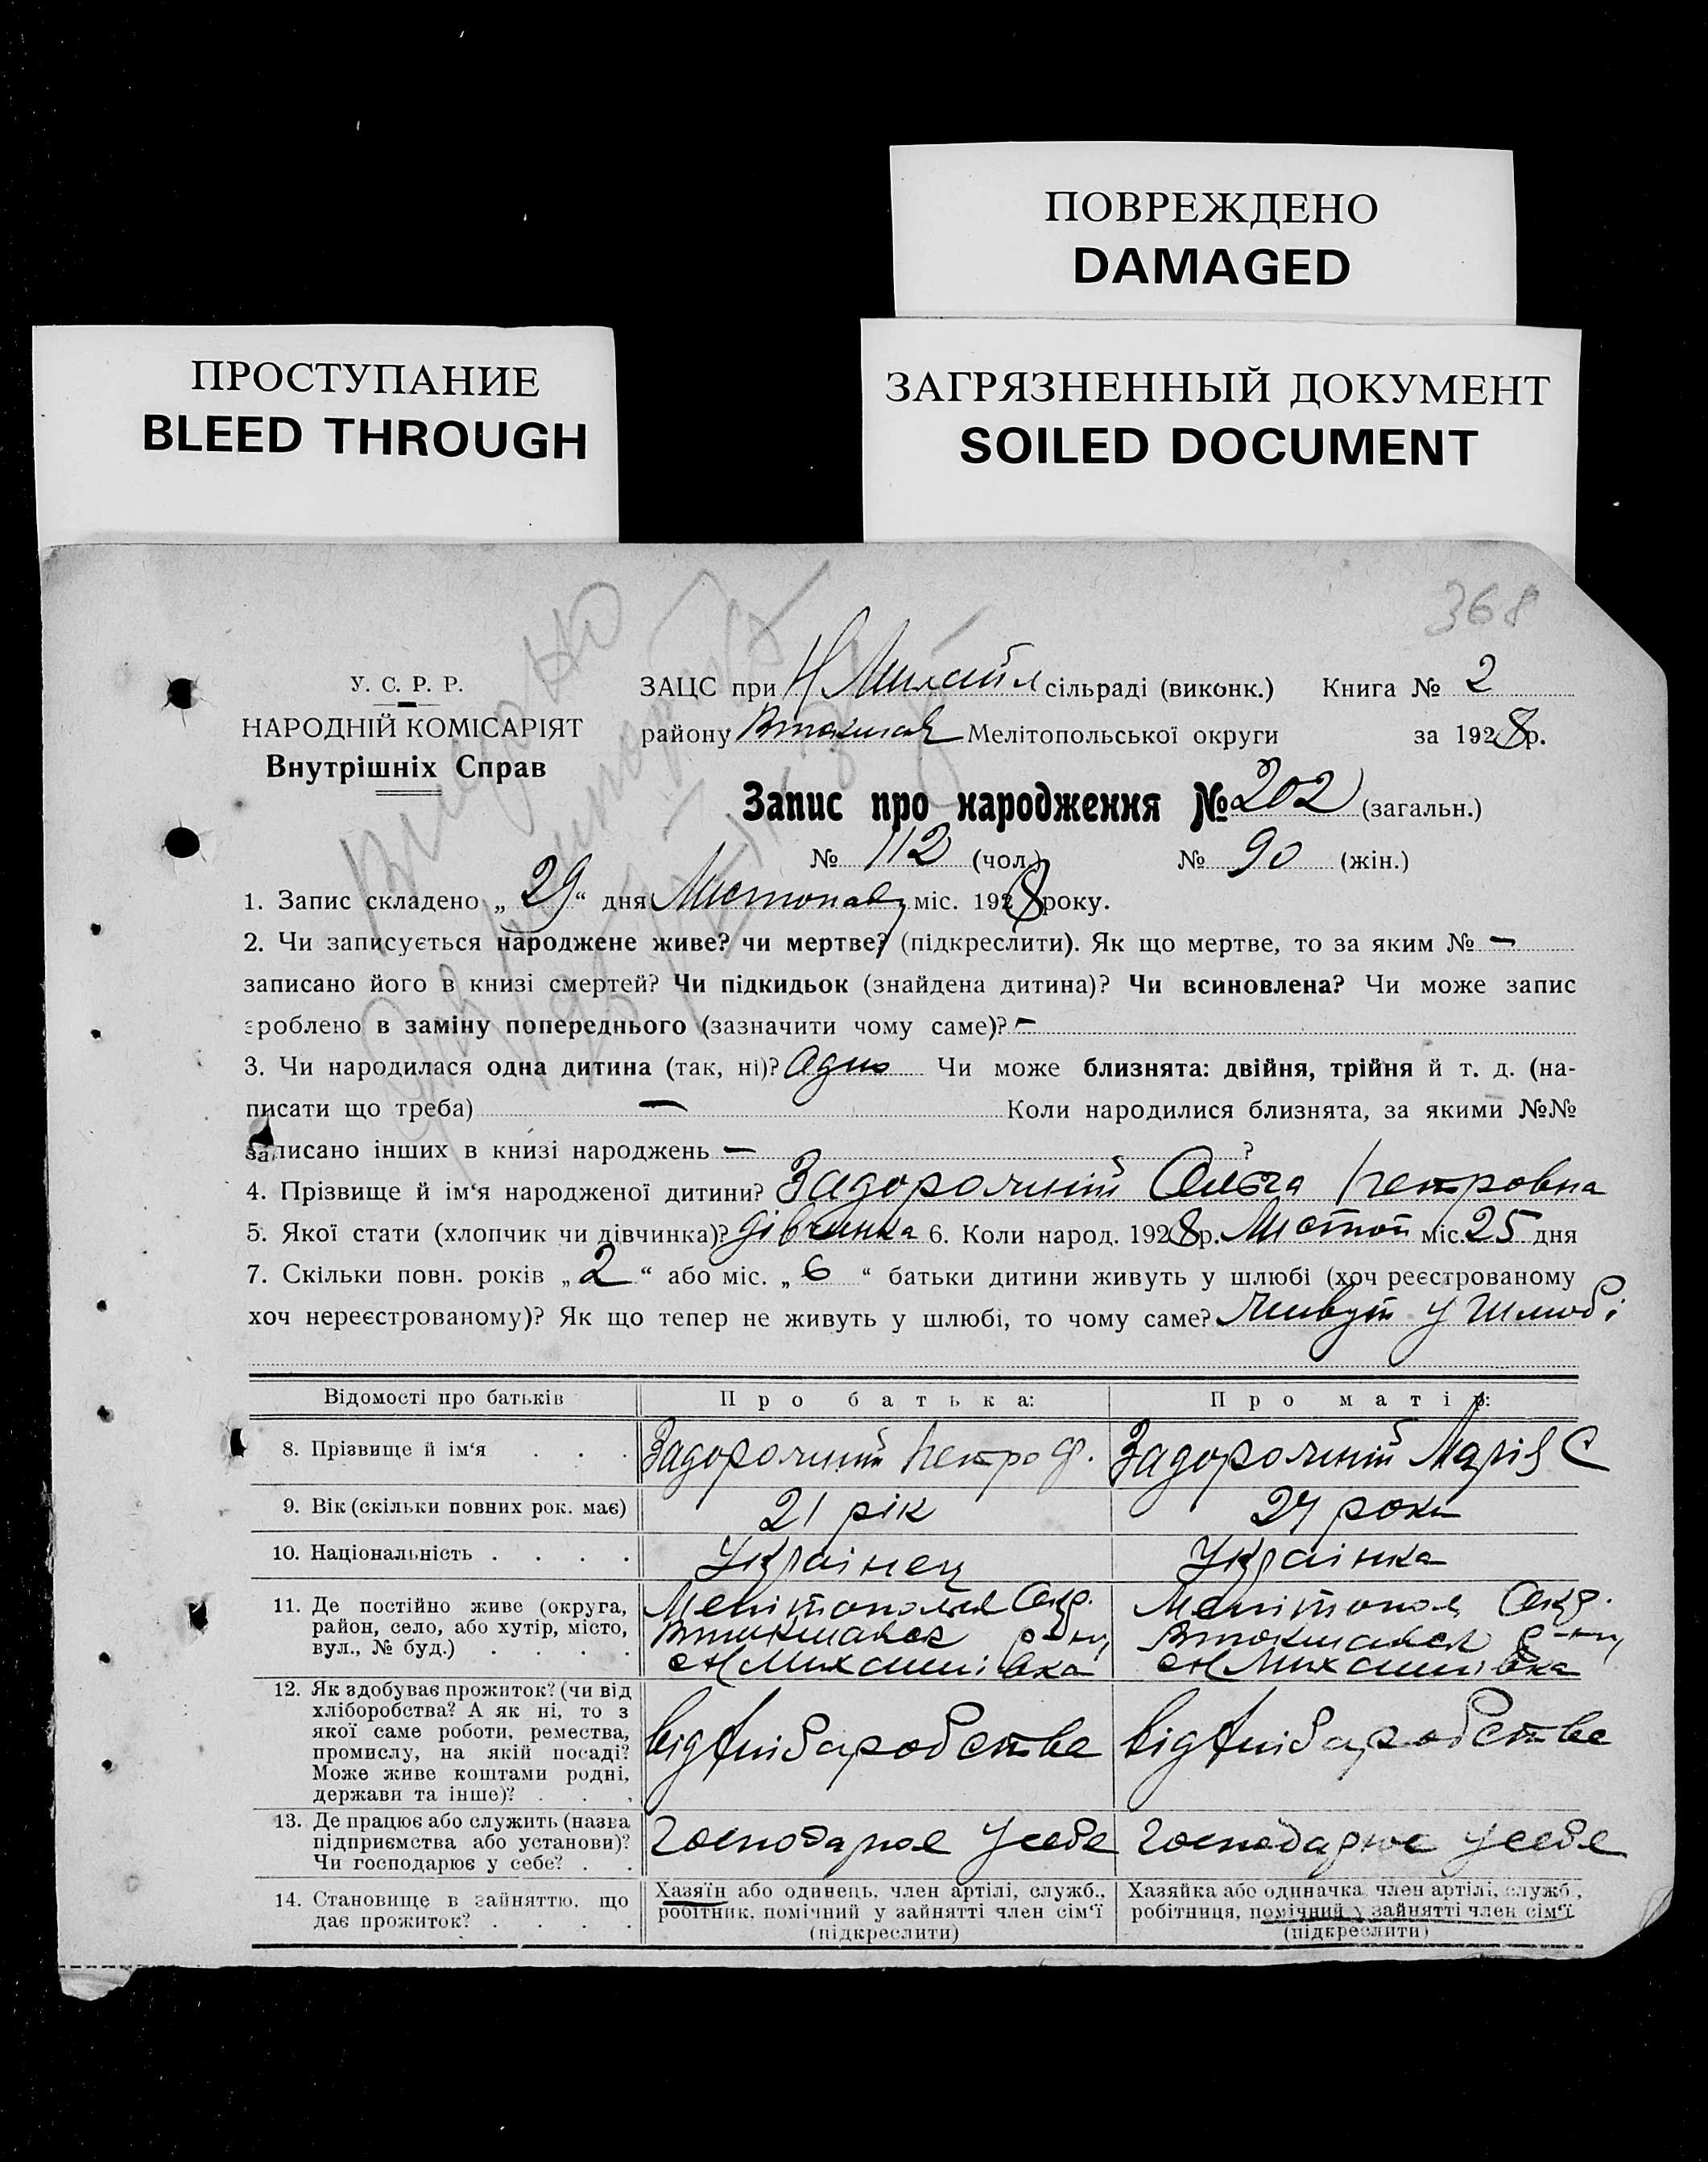 ПОВРЕЖДЕНО
DAMAGED
ПРОСТУПАНИЕ
BLEED THROUGH
ЗАГРЯЗНЕННЫЙ ДОКУМЕНТ
SOILED DOCUMENT
368
У. С. Р. Р.
НАРОДНІЙ КОМІСАРІЯТ
Внутрішніх Справ
ЗАЦС при Н Михайл сільраді (виконк.) Книга № 2
району Втокмак Мелітопольської округи за 1928 р.
Запис про народження № 202 (загальн.)
№ 112 (чол.) № 90 (жін.)
1. Запис складено „ 29 “ дня Листопад міс. 1928 року.
2. Чи записується народжене живе? чи мертве? (підкреслити). Як що мертве, то за яким № —
записано його в книзі смертей? Чи підкидьок (знайдена дитина)? Чи всиновлена? Чи може запис
зроблено в заміну попереднього (зазначити чому саме)? —
3. Чи народилася одна дитина (так, ні)? Одно Чи може близнята: двійня, трійня й т. д. (на-
писати що треба) — Коли народилися близнята, за якими №№
записано інших в книзі народжень — ?
4. Прізвище й ім‘я народженої дитини? Задорожній Ольга Петровна
5. Якої стати (хлопчик чи дівчинка)? дівчинка 6. Коли народ. 1928 р. Листоп міс. 25 дня
7. Скільки повн. років „ 2 “ або міс. „ 6 “ батьки дитини живуть у шлюбі (хоч реєстрованому
хоч нереєстрованому)? Як що тепер не живуть у шлюбі, то чому саме? живут у шлюбі
Відомості про батьків Про батька: Про матір:
8. Прізвище й ім‘я . . . Задорожній Петро Ф. Задорожній Марія С
9. Вік (скільки повних рок. має) 21 рік роки
10. Національність . . . . Українец Українка
11. Де постійно живе (округа, район, село, або хутір, місто, вул., № буд.) . . . .
Окр.
Втокмавск р-ну
с Н Михайлівка
Окр.
Втокмавск р-ну
с Н Михайлівка
12. Як здобуває прожиток? (чи від хліборобства? А як ні, то з якої саме роботи, ремества, промислу, на якій посаді? Може живе коштами родні, держави та інше)? . . .
від
від
13. Де працює або служить (назва підприємства або установи)? Чи господарює у себе? . .
у себе
Господарює у себе
14. Становище в зайняттю, що дає прожиток? . . . .
Хазяїн або одинець, член артілі, служб., робітник, помічний у зайнятті член сім‘ї (підкреслити)
Хазяйка або одиначка, член артілі, служб., робітниця, помічний у зайнятті член сім‘ї (підкреслити)